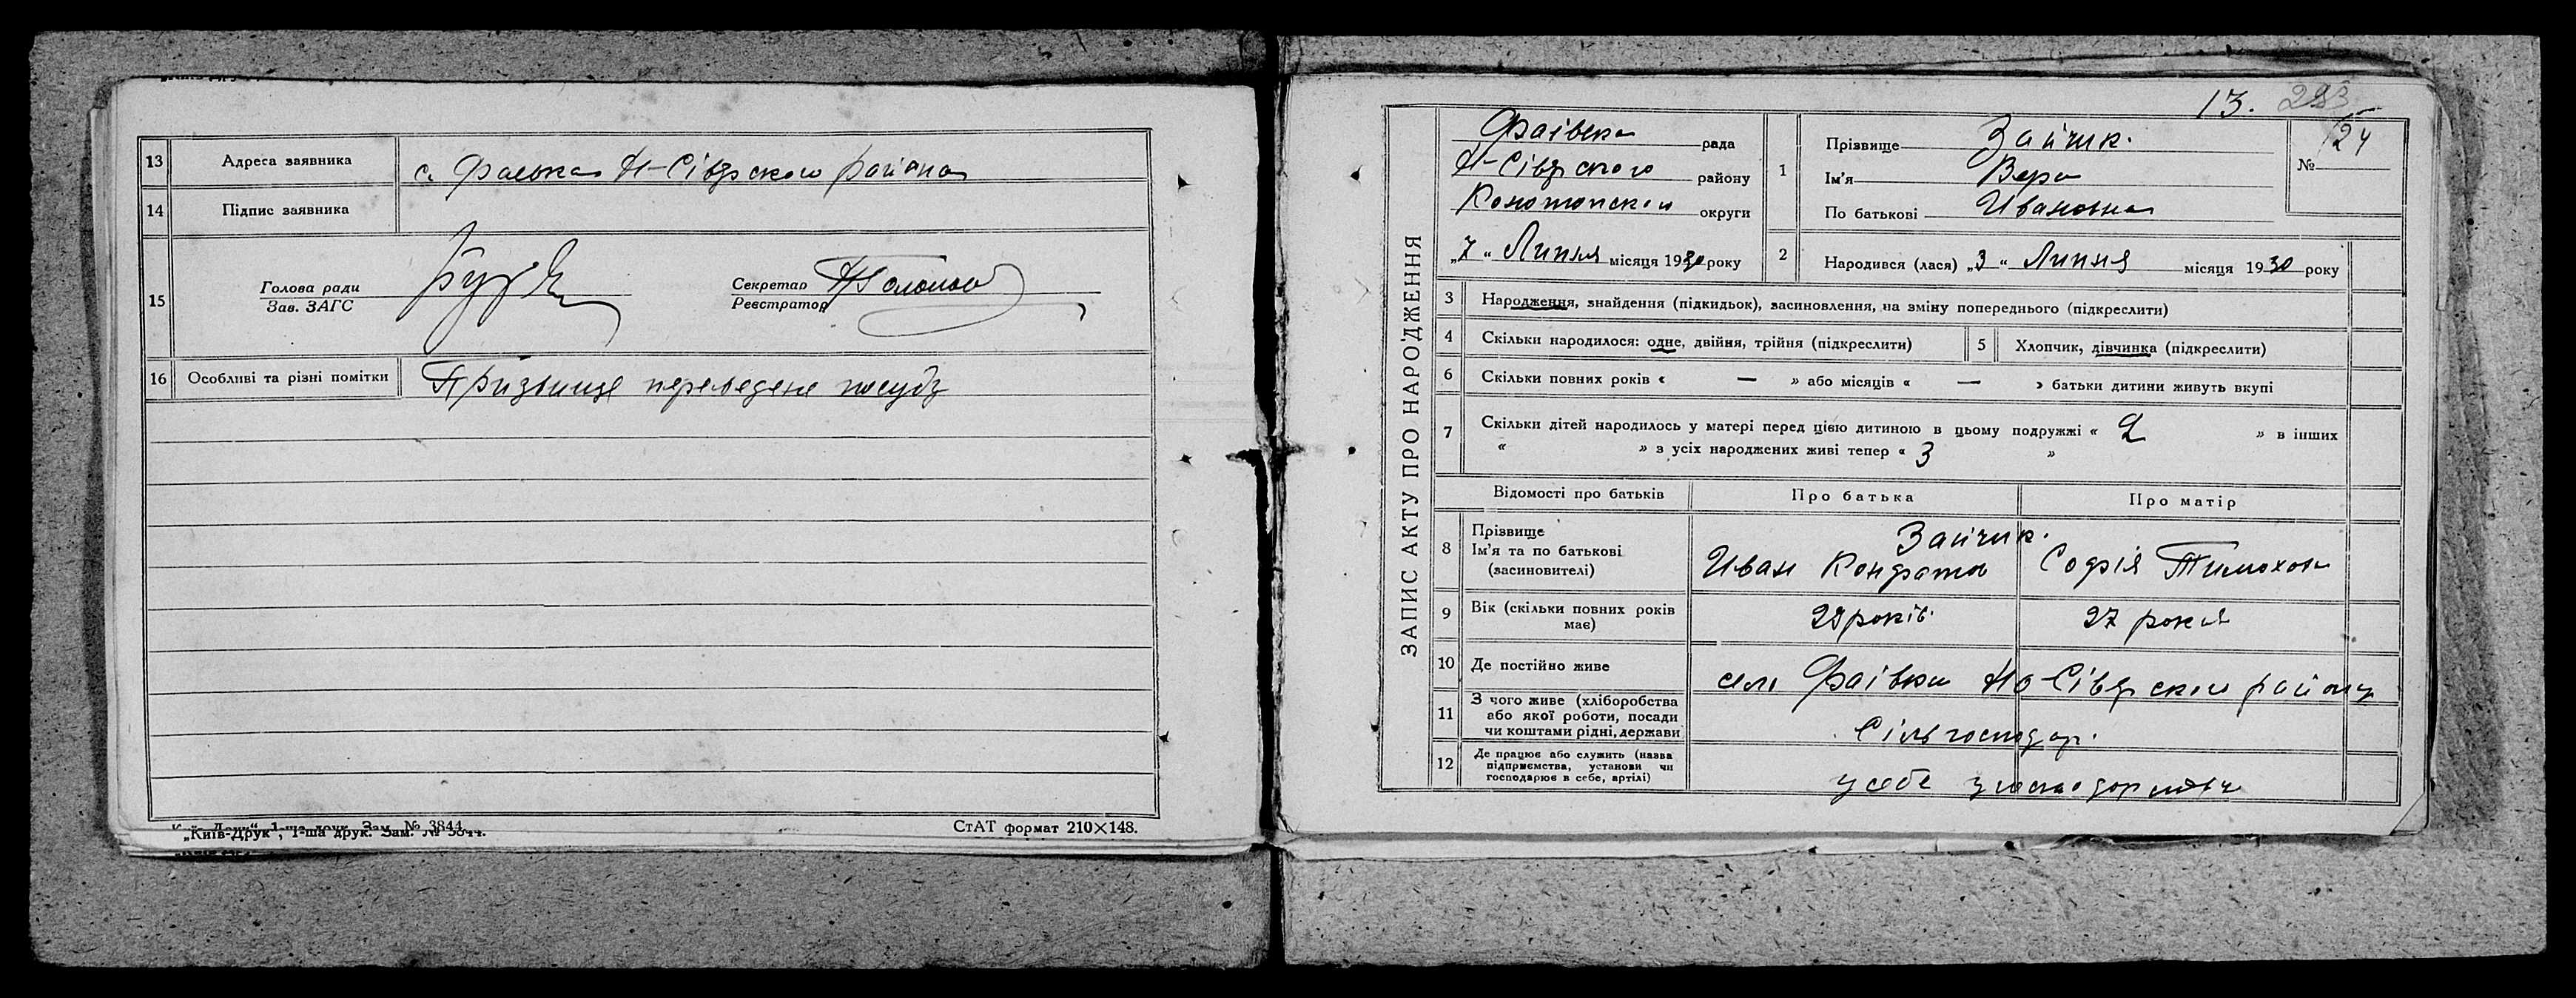 13 Адреса заявника с. Фаевка Н-Сіверского района
14 Підпис заявника
15 Голова ради
Зав. ЗАГС
Секретар
Реєстратор
16 Особливі та різні помітки Призвище переведене
„Київ-Друк", 1-ша друк. Зам. № 3844.
СтАТ формат 210×148.
13. 283
ЗАПИС АКТУ ПРО НАРОДЖЕННЯ
Фаівска рада
Н-Сіверского району
Конотопской округи
„7" Липня місяця 1930 року
1 Прізвище Зайчик.
Ім'я Вера
По батькові Ивановна
№ 124
2 Народився (лася) „3" Липня місяця 1930 року
3 Народження, знайдення (підкидьок), засиновлення, на зміну попереднього (підкреслити)
4 Скільки народилося: одне, двійня, трійня (підкреслити)
5 Хлопчик, дівчинка (підкреслити)
6 Скільки повних років « — » або місяців « — » батьки дитини живуть вкупі
7 Скільки дітей народилось у матері перед цією дитиною в цьому подружжі « 2 » в інших
« » з усіх народжених живі тепер « 3 »
Відомості про батьків Про батька Про матір
8 Прізвище
Ім'я та по батькові
(засиновителі)
Зайчик.
Иван Кондратов Софія Тимохов
9 Вік (скільки повних років
має)
років 27 років
10 Де постійно живе село Фаівки Но-Сіверского району
11 З чого живе (хліборобства
або якої роботи, посади
чи коштами рідні, держави
Сільгосподар.
12 Де працює або служить (назва
підприємства, установи чи
господарює в себе, артілі)
у себе у господарстві